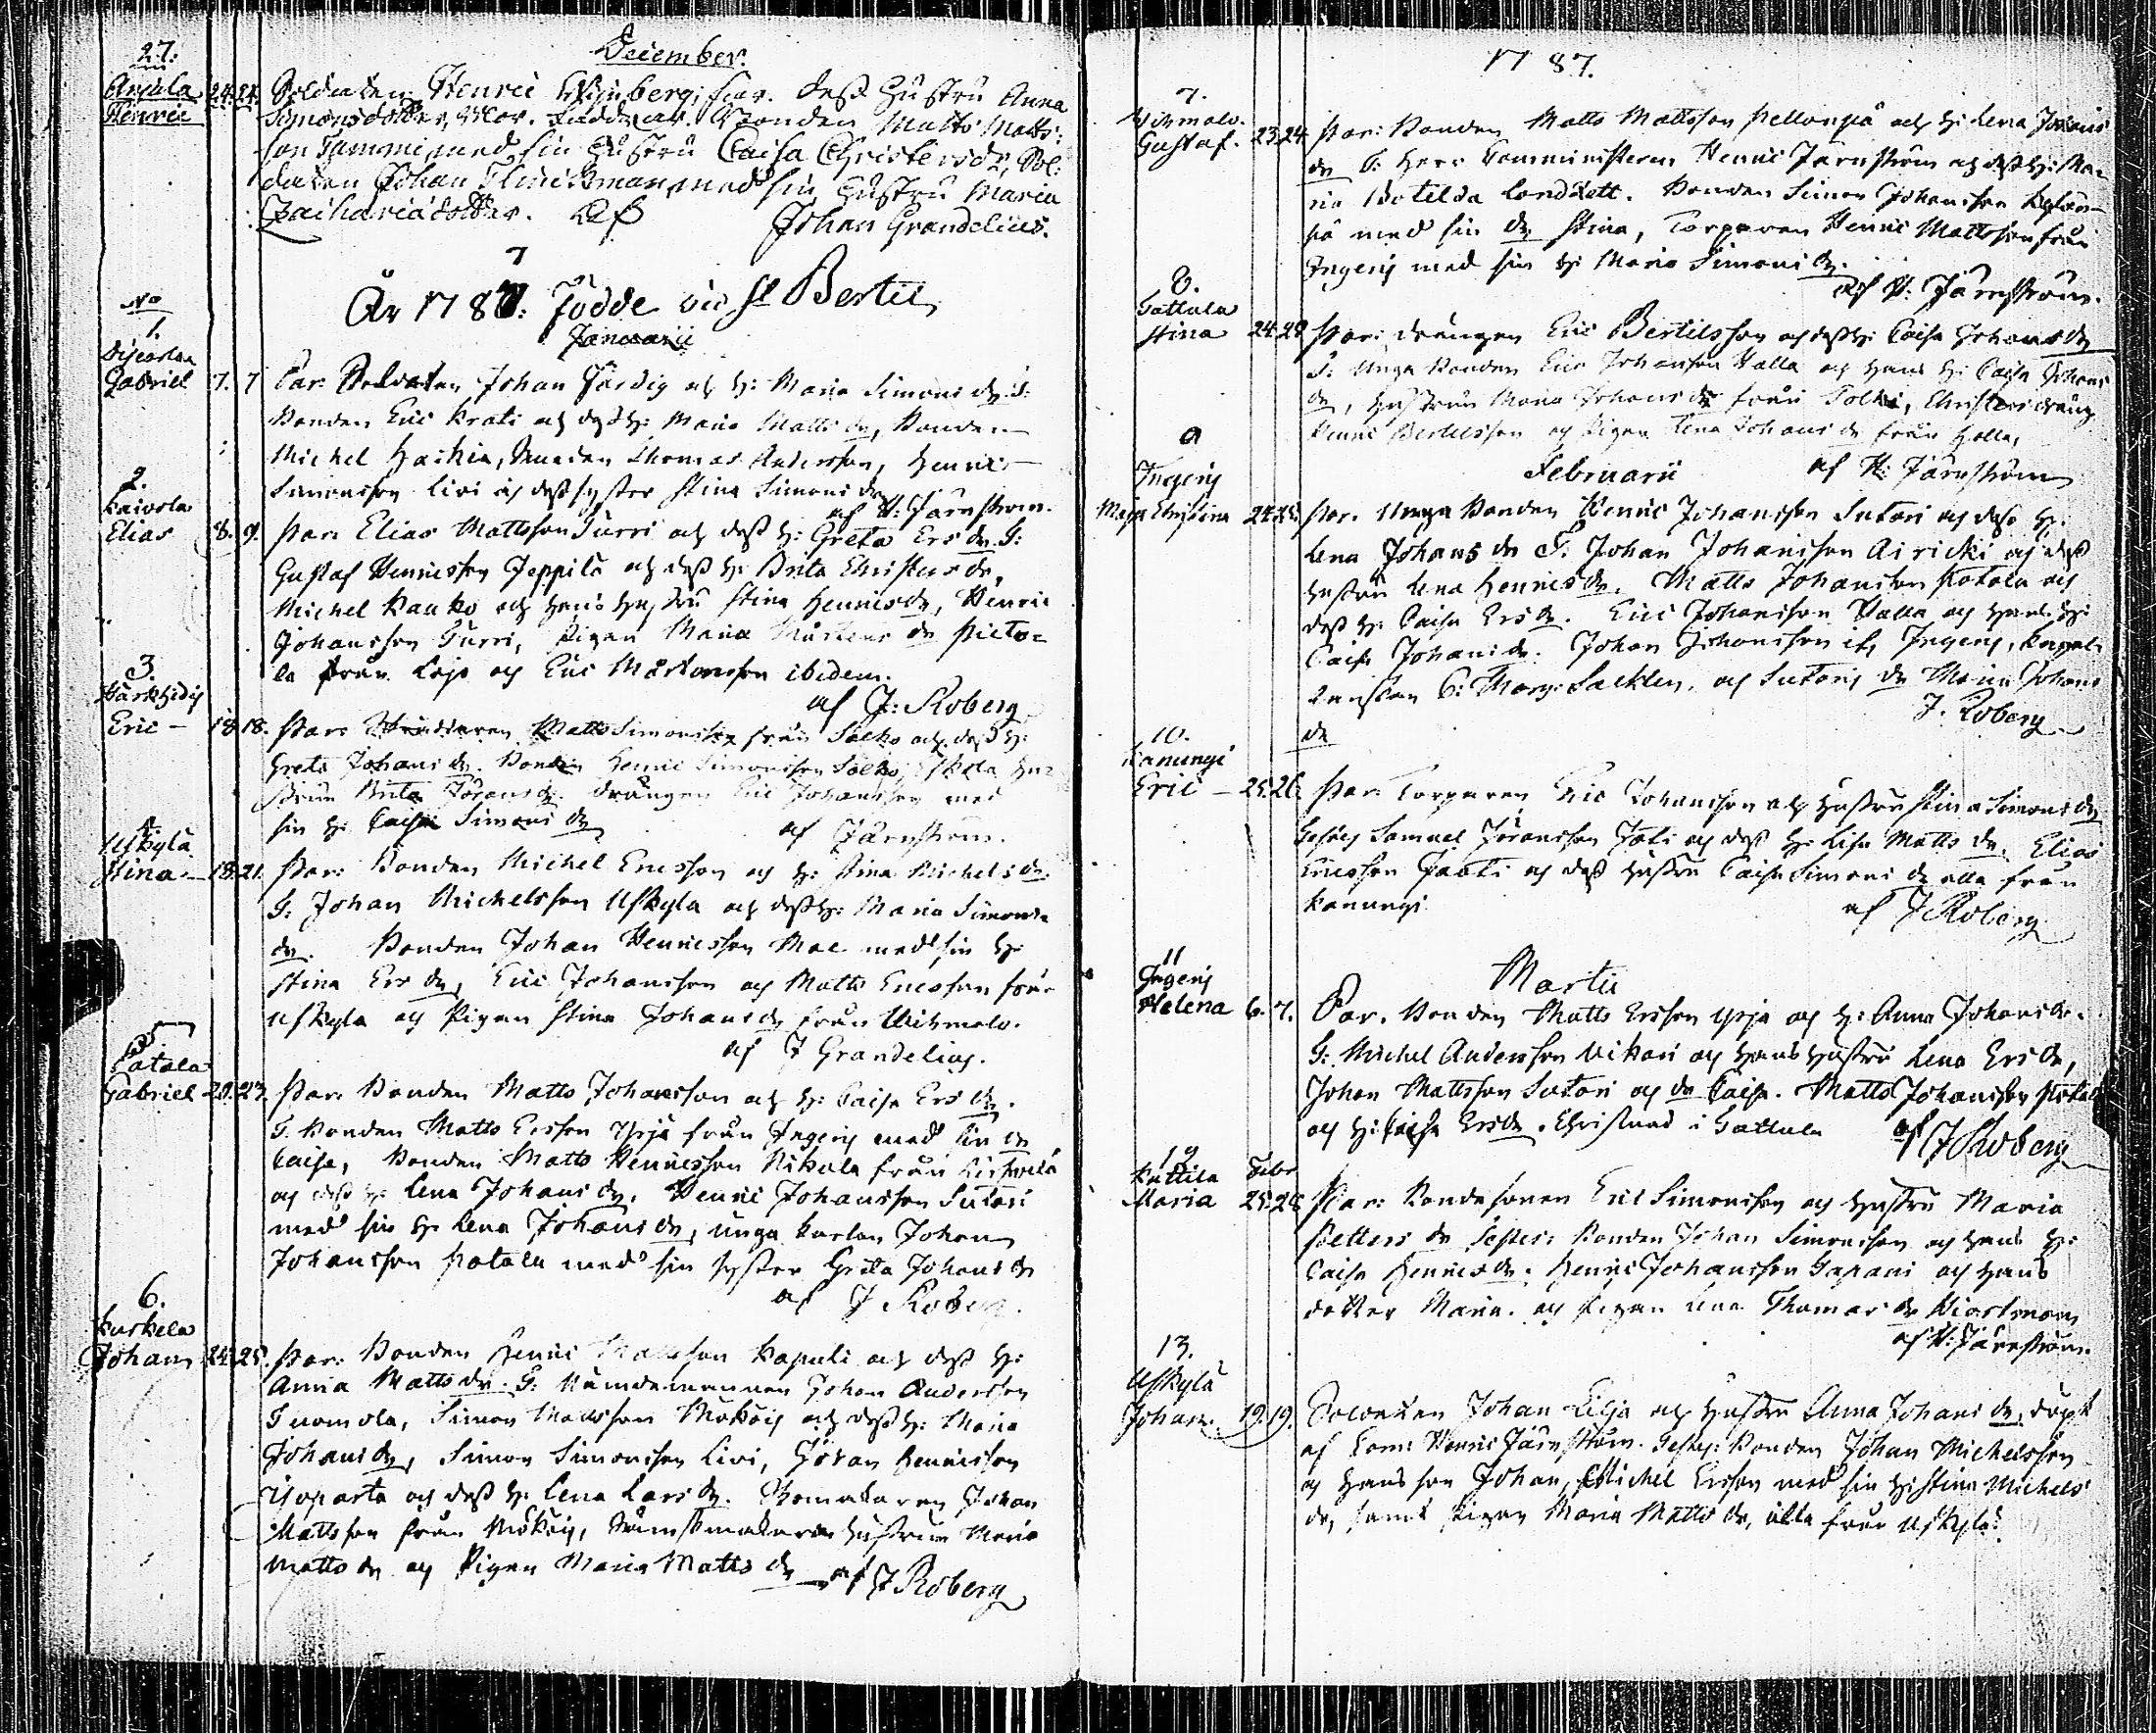 December.
27.
Anjala
Henric 24. 24. Soldaten Henric berg, par. dess Hustru Anna
Simonsdotter, Vxor. Faddrar. Bonden Matts Matts:
son Tammi med sin Hustru Caisa Christersdr, Sol:
daten Johan Flinckman med sin Hustru Maria
Zachariædotter. af Johan Grandelius.
7
År 1787: Födde vid St Bertil
Januarii
No
1.
Gabriel 7. 7 Par: Soldaten Johan Färdig och H: Maria Simons dr. T:
Bonden Eric Krati och dess H: Maria Matts dr, Bonden
Michel Haihia, Thomas Andersson, Henric
Simonsson Livi och dess syster Stina Simons dr
af H: Järnström.
2.
Kaivola
Elias 8. 9. Par: Elias Mattsson Turri och dess H: Greta Ers dr. T:
Gustaf Henricsson Jeppilä och dess H: Brita Christers dr,
Michel Kauko och hans hustru Stina Henricsdr, Henric
Johansson Turri, Pigan Maria Mårtens dr Pieto-
la från Lojo och Eric Mårtensson ibidem.
af J: Roberg
3.
Eric — 18 18. Par: Matts Simonsson från Salko och dess H:
Greta Johans dr. Bonden Henric Simonsson Salko, hu-
strun Brita Jörans dr. Drängen Eric Johansson med
sin H: Caisa Simons dr af Järnström.
4.
Uskylä
Stina — 18. 21. Par: Bonden Michel Ericsson och H: Stina Michels dr.
T: Johan Michelsson Uskyla och dess H: Maria Simons
dr. Bonden Johan Henricsson Mae med sin H:
Stina Ers dr, Eric Johansson och Matts Ericsson från
Uskyla och Pigan Stina Johans dr från Wihmalo.
af J Grandelius.
5
Patala
Gabriel 20. 23. Par: Bonden Matts Johansson och H: Caisa Ers dr.
T. Bonden Matts Ersson Yrjä från Ingeris med sin dr
Caisa, Bonden Matts Henricsson Nikula från
och dess H: Lena Johans dr. Henric Johansson Sutari
med sin H: Lena Johans dr, unga karlen Johan
Johansson Patala med sin syster Greta Johans dr
af J Roberg.
6.
Kuskela
Johan 24. 25. Par: Bonden Henric Mattsson Kaputi och dess H:
Anna Matts dr. T: Nämdemannen Johan Andersson
Tuomola, Simon Mattsson Mököis och dess H: Maria
Johans dr, Simon Simonsson Livi, Jöran Henricsson
och dess H: Lena Lars dr. Skomakaren Johan
Mattsson från Mököis, hustrun Maria
Matts dr och Pigan Maria Matts dr af J Roberg
1787.
7.
Wihmalo.
Gustaf. 23. 24. Par: Bonden Matts Mattsson Pellonpä och H: Lena Johans
dr T: Herr Comministern Henric Järnström och dess H: Ma-
ria Botilda Londzett. Bonden Simon Johansson
pä med sin dr Stina, Torparen Henric Mattsson från
Ingeris med sin H: Maria Simons dr.
af H: Järnström.
8.
Gattula
Stina 24. 28 Par: Drängen Eric Bertilsson och dess H: Caisa Johans dr
T: Unga Bonden Eric Johansson Halla och hans H: Caisa Johans
dr, hustrun Maria Johans dr från Tolki, dräng
Henric Bertilsson och Pigan Lena Johans dr från Halla,
af H: Järnström
Februarii
9
Ingeris
Maja Christina 24. 25. Par. Unga Bonden Henric Johansson Sutari och dess H:
Lena Johans dr T: Johan Johansson Airicki och dess
hustru Lena Henrics dr. Matts Johansson Patala och
dess H: Caisa Ers dr. Eric Johansson Halla och hans H:
Caisa Johans dr. Johan Johansson if. Ingeris,
C: Marg: Sacklen, och Sutaris dr Maria Johans
dr J. Roberg
10.
Kanungi
Eric — 25. 26. Par: Torparen Eric Johansson och Hustru Stina Simons dr
Samuel Jöransson Jåti och dess H: Lisa Matts dr. Elias
Ericsson Jaati och dess hustru Caisa Simons dr alla från
Kanungi. af J Roberg
Martii
11
Ingeris
Helena 6. 7. Par. Bonden Matts Ersson Yrja och H: Anna Johans dr.
T: Michel Andersson Uikari och hans hustru Lena Ers dr,
Johan Mattsson Sutari och dr Caisa. Matts Johansson Patala
och H: Caisa Ers dr. Christnad i Gattula af J Roberg
12
Kattila Febr
Maria 25. 26 Par: Bondesonen Eric Simonsson och hustru Maria
Petters dr Testes: Bonden Johan Simonsson och hans H:
Caisa Henrics dr. Henric Johansson Gapani och hans
dotter Maria. och Pigan Lena Thomas dr
af H: Järnström.
13.
Uskylä
Johan. 19. 19. Soldaten Johan Lilja och Hustru Anna Johans dr, döpt
af Com: Henric Järnström. Testes: Bonden Johan Michelsson
och hans son Johan, Michel Ersson med sin H: Stina Michels
dr, samt Pigan Maria Matts dr, alla från Uskyla.